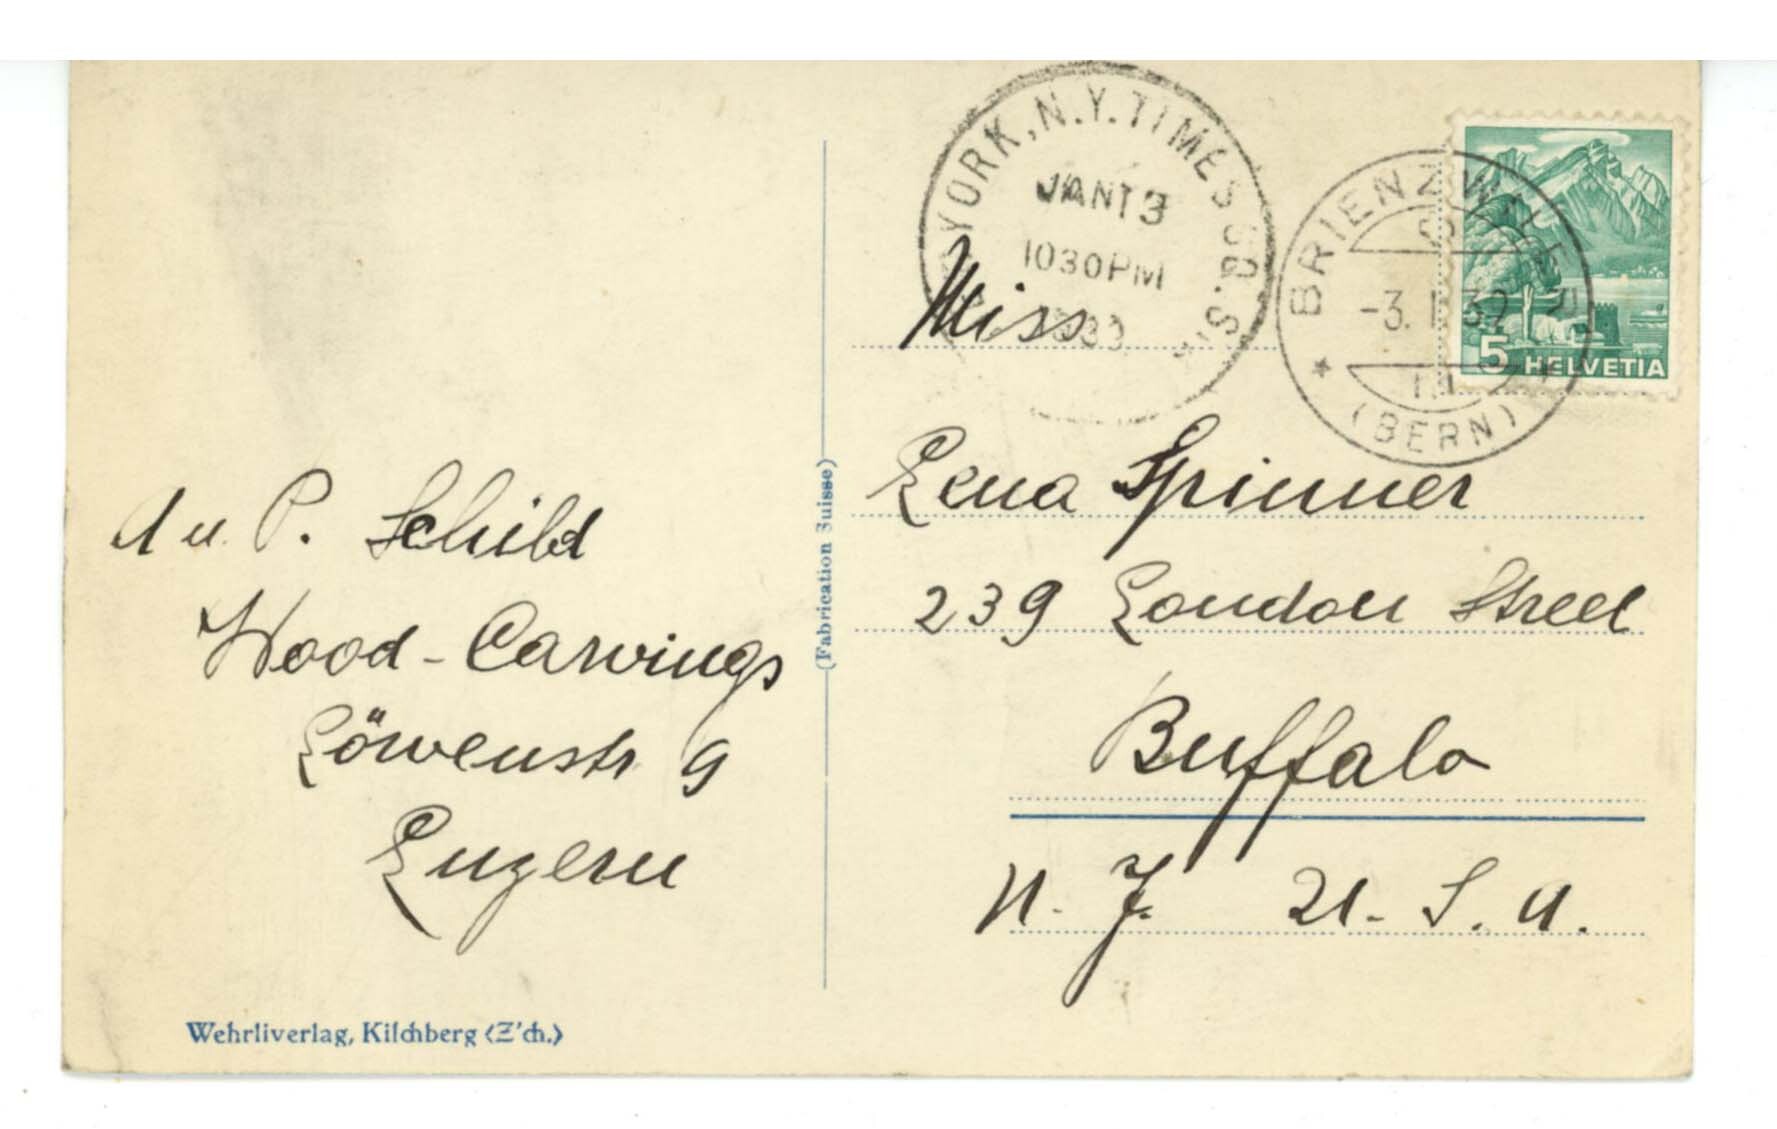 YORK, N.Y. TIMES SQ. S
JAN 13
1030 PM
BRIENZWILER
-3. I. 39
(BERN)
5 HELVETIA
Miss
Lena Spinner
239 London Street
Buffalo
N. J. U. S. A.
A u. P. Schild
Wood-Carvings
Löwenstr 9
Luzern
(Fabrication Suisse)
Wehrliverlag, Kilchberg (Z'ch.)